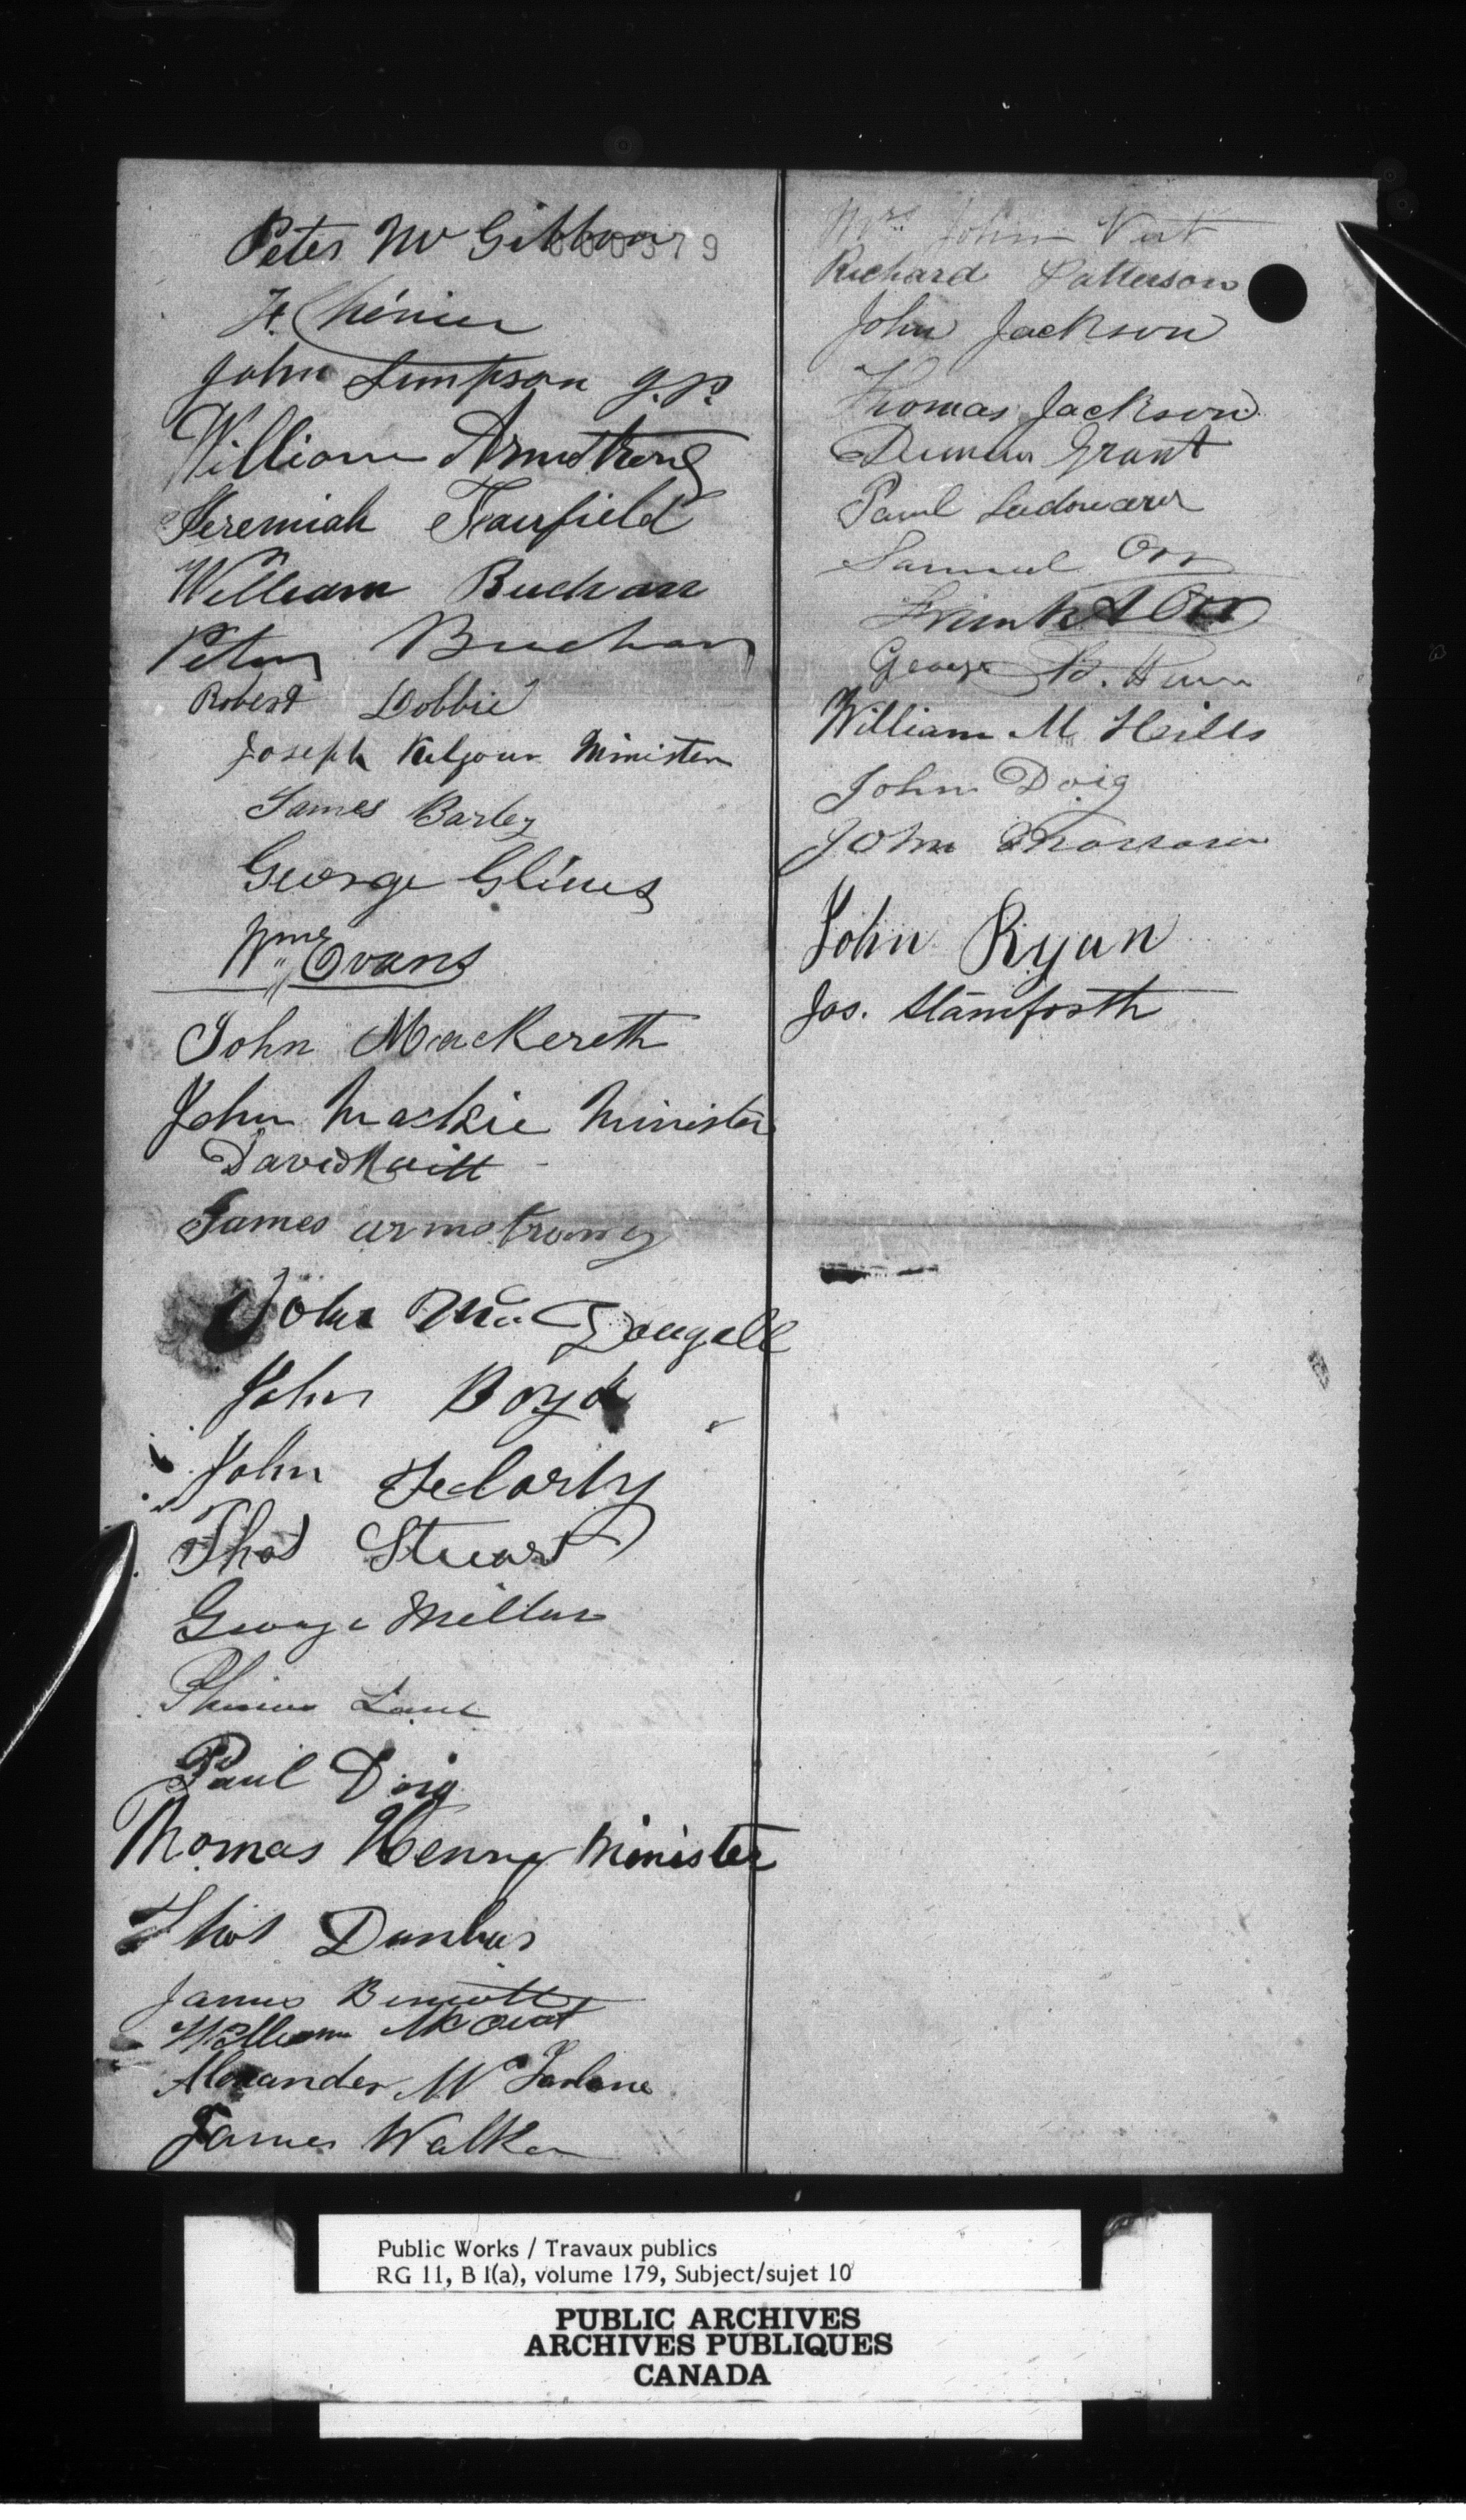 Peter McGibbon
000379
F. Chénier
John Simpson J.P.
William Armstrong
Jeremiah Fairfield
William Buchan
Peter Buchan
Robert Dobbie
Joseph Kilgour Minister
James Barley
George Glines
Wm Evans
John Mackereth
John Mackie Minister
David
James armstrong
John Mc Dougall
John Boyd
John
Thos Stuart
George Miller
Lane
Paul Doig
Thomas Henry Minister
Thos Dunbar
James
William McOuat
Alexander McFarlane
James Walker
Mrs John
Richard Patterson
John Jackson
Thomas Jackson
Duncan Grant
Paul
Samuel Orr
Frank A Orr
George B.
William M Hills
John Doig
John
John Ryan
Jos. Staniforth
Public Works / Travaux publics
RG 11, B 1(a), volume 179, Subject/sujet 10
PUBLIC ARCHIVES
ARCHIVES PUBLIQUES
CANADA